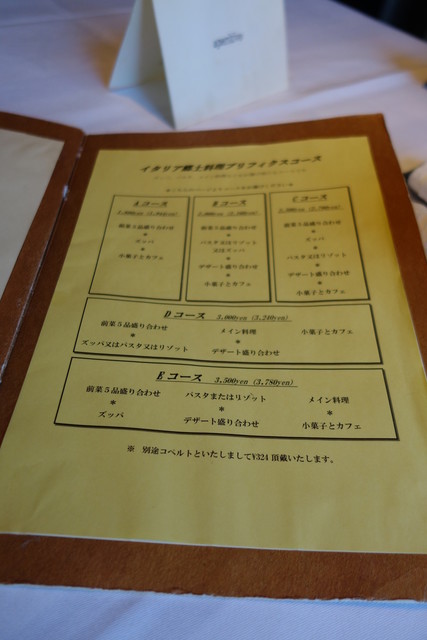 aperitivo
イタリア郷土料理プリフィクスコース
Aコース
前菜5品盛り合わせ
＊
ズッパ
＊
小菓子とカフェ
Bコース
前菜5品盛り合わせ
＊
パスタ又はリゾット
又はズッパ
＊
デザート盛り合わせ
＊
小菓子とカフェ
Cコース
前菜5品盛り合わせ
＊
ズッパ
＊
パスタ又はリゾット
＊
デザート盛り合わせ
＊
小菓子とカフェ
Dコース 3,000yen (3,240yen)
前菜5品盛り合わせ
＊
ズッパ又はパスタ又はリゾット
メイン料理
＊
デザート盛り合わせ
小菓子とカフェ
Eコース 3,500yen (3,780yen)
前菜5品盛り合わせ
＊
ズッパ
パスタまたはリゾット
＊
デザート盛り合わせ
メイン料理
＊
小菓子とカフェ
※ 別途コペルトといたしまして¥324頂戴いたします。